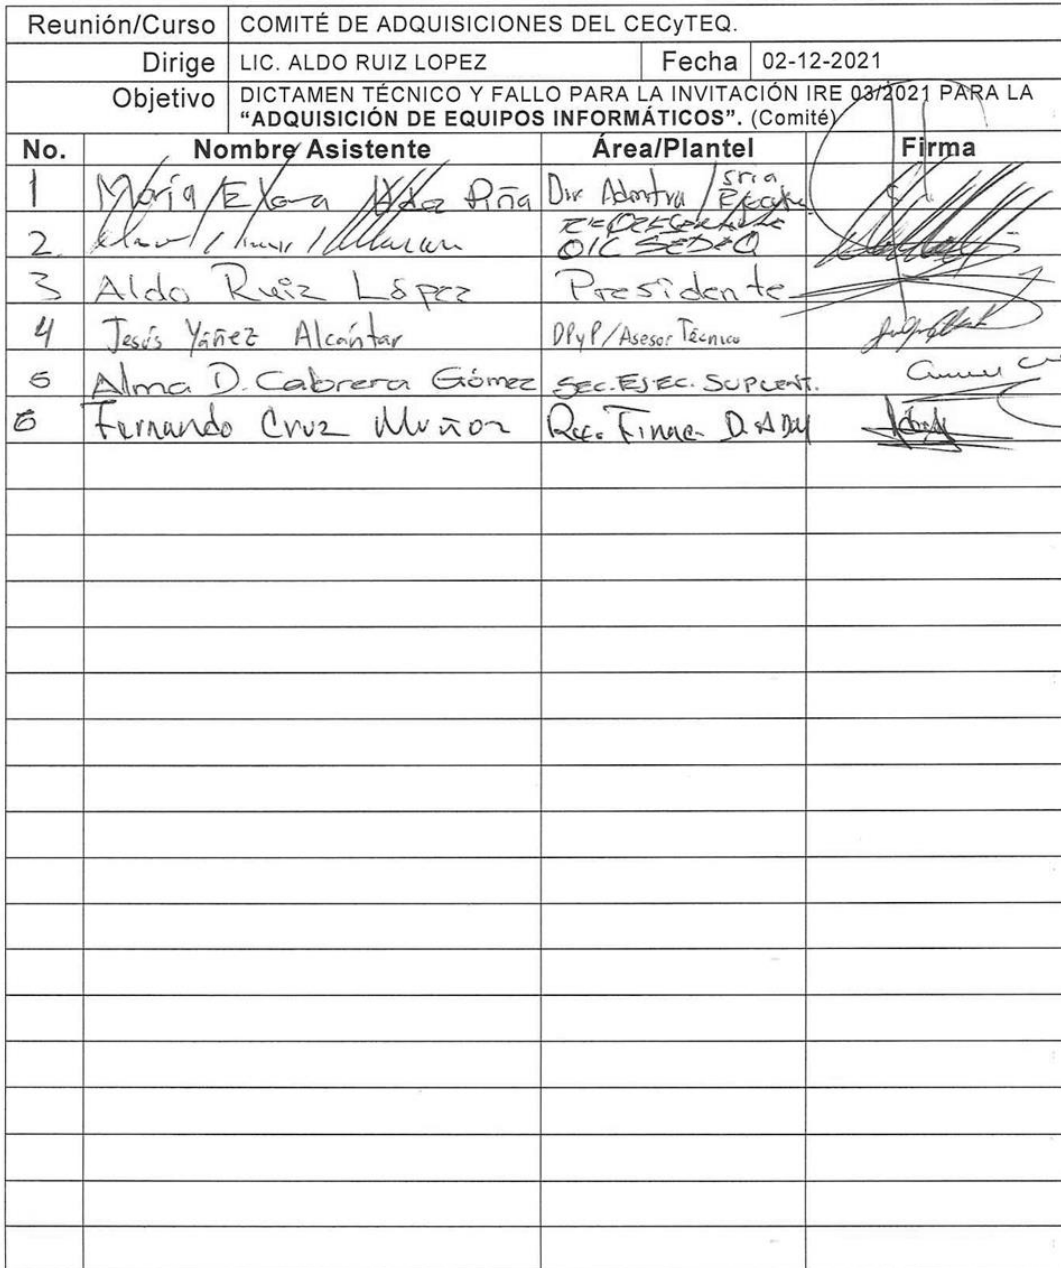 Reunión/Curso COMITÉ DE ADQUISICIONES DEL CECyTEQ.
Dirige LIC. ALDO RUIZ LOPEZ Fecha 02-12-2021
Objetivo DICTAMEN TÉCNICO Y FALLO PARA LA INVITACIÓN IRE 03/2021 PARA LA
“ADQUISICIÓN DE EQUIPOS INFORMÁTICOS”. (Comité)
No. Nombre Asistente Área/Plantel Firma
1 María Elena Piña Dir Admtva / Sria
2. OIC SEDEQ
3 Aldo Ruiz López Presidente
4 Jesús Yáñez Alcántar DPyP/Asesor Técnico
5 Alma D. Cabrera Gómez SEC. EJEC. SUPLENT.
6 Fernando Cruz Muñoz